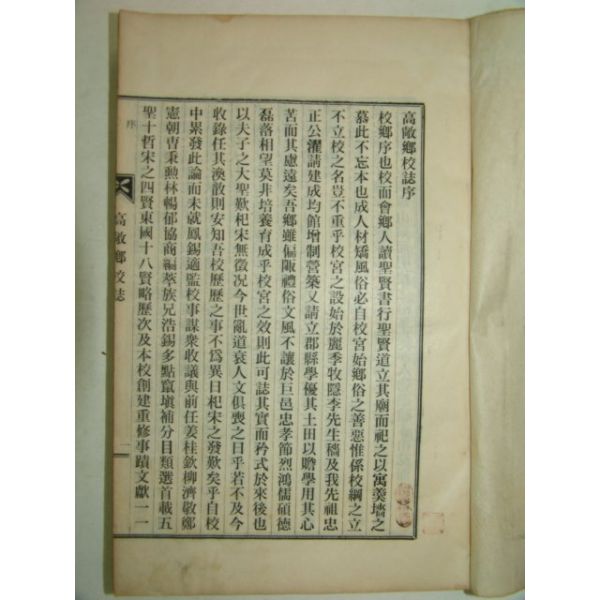 高敞鄉校誌序
校鄉序也校而會鄉人讀聖賢書行聖賢道立其廟而祀之以寓羹墻之
慕此不忘本也成人材矯風俗必自校宮始鄉俗之善惡惟係校綱之立
不立校之名豈不重乎校宮之設始於麗季牧隱李先生穡及我先祖忠
正公濯請建成均館增制營築又請立郡縣學優其土田以贍學用其心
苦而其慮遠矣吾鄉雖偏陬禮俗文風不讓於巨邑忠孝節烈鴻儒碩德
磊落相望莫非培養育成乎校宮之效則此可誌其實而矜式於來後也
以夫子之大聖歎杞宋無徵况今世亂道衰人文俱喪之日乎若不及今
收錄任其渙散則安知吾校歷歷之事不爲異日杞宋之發歎矣乎自校
中累發此論而未就鳳錫適監校事謀衆收議與前任姜桂欽柳濟敬鄭
憲朝曺秉勲林暢郁協商編萃族兄浩錫多點竄塡補分目類選首載五
聖十哲宋之四賢東國十八賢略歷次及本校創建重修事蹟文獻一一
高敞鄉校誌
序
一